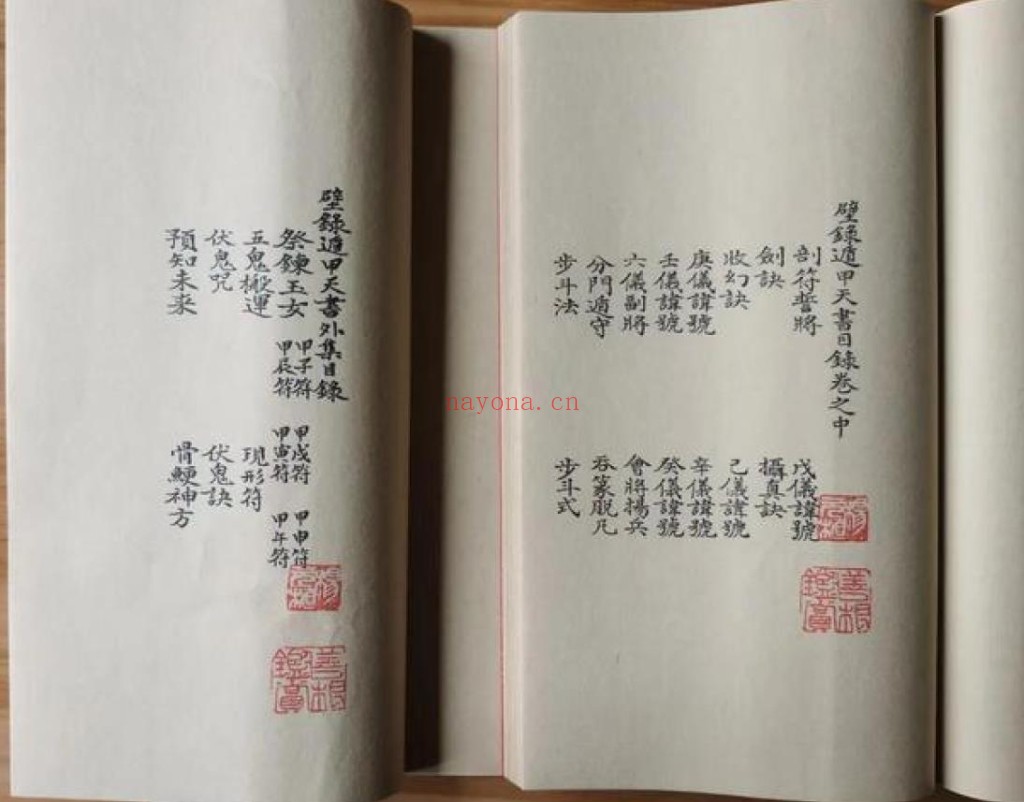 壁錄遁甲天書目錄卷之中
剖符誓將 戊儀諱號
劍訣 攝真訣
收幻訣 己儀諱號
庚儀諱號 辛儀諱號
壬儀諱號 癸儀諱號
六儀副將 會將揚兵
分門遁守 吞篆脫凡
步斗法 步斗式
善根鑑賞
壁錄遁甲天書外集目錄
祭鍊玉女 甲子符 甲戌符 甲申符
甲辰符 甲寅符 甲午符
五鬼搬運 現形符
伏鬼咒 伏鬼訣
預知未來 骨鯁神方
善根鑑賞
nayona.cn